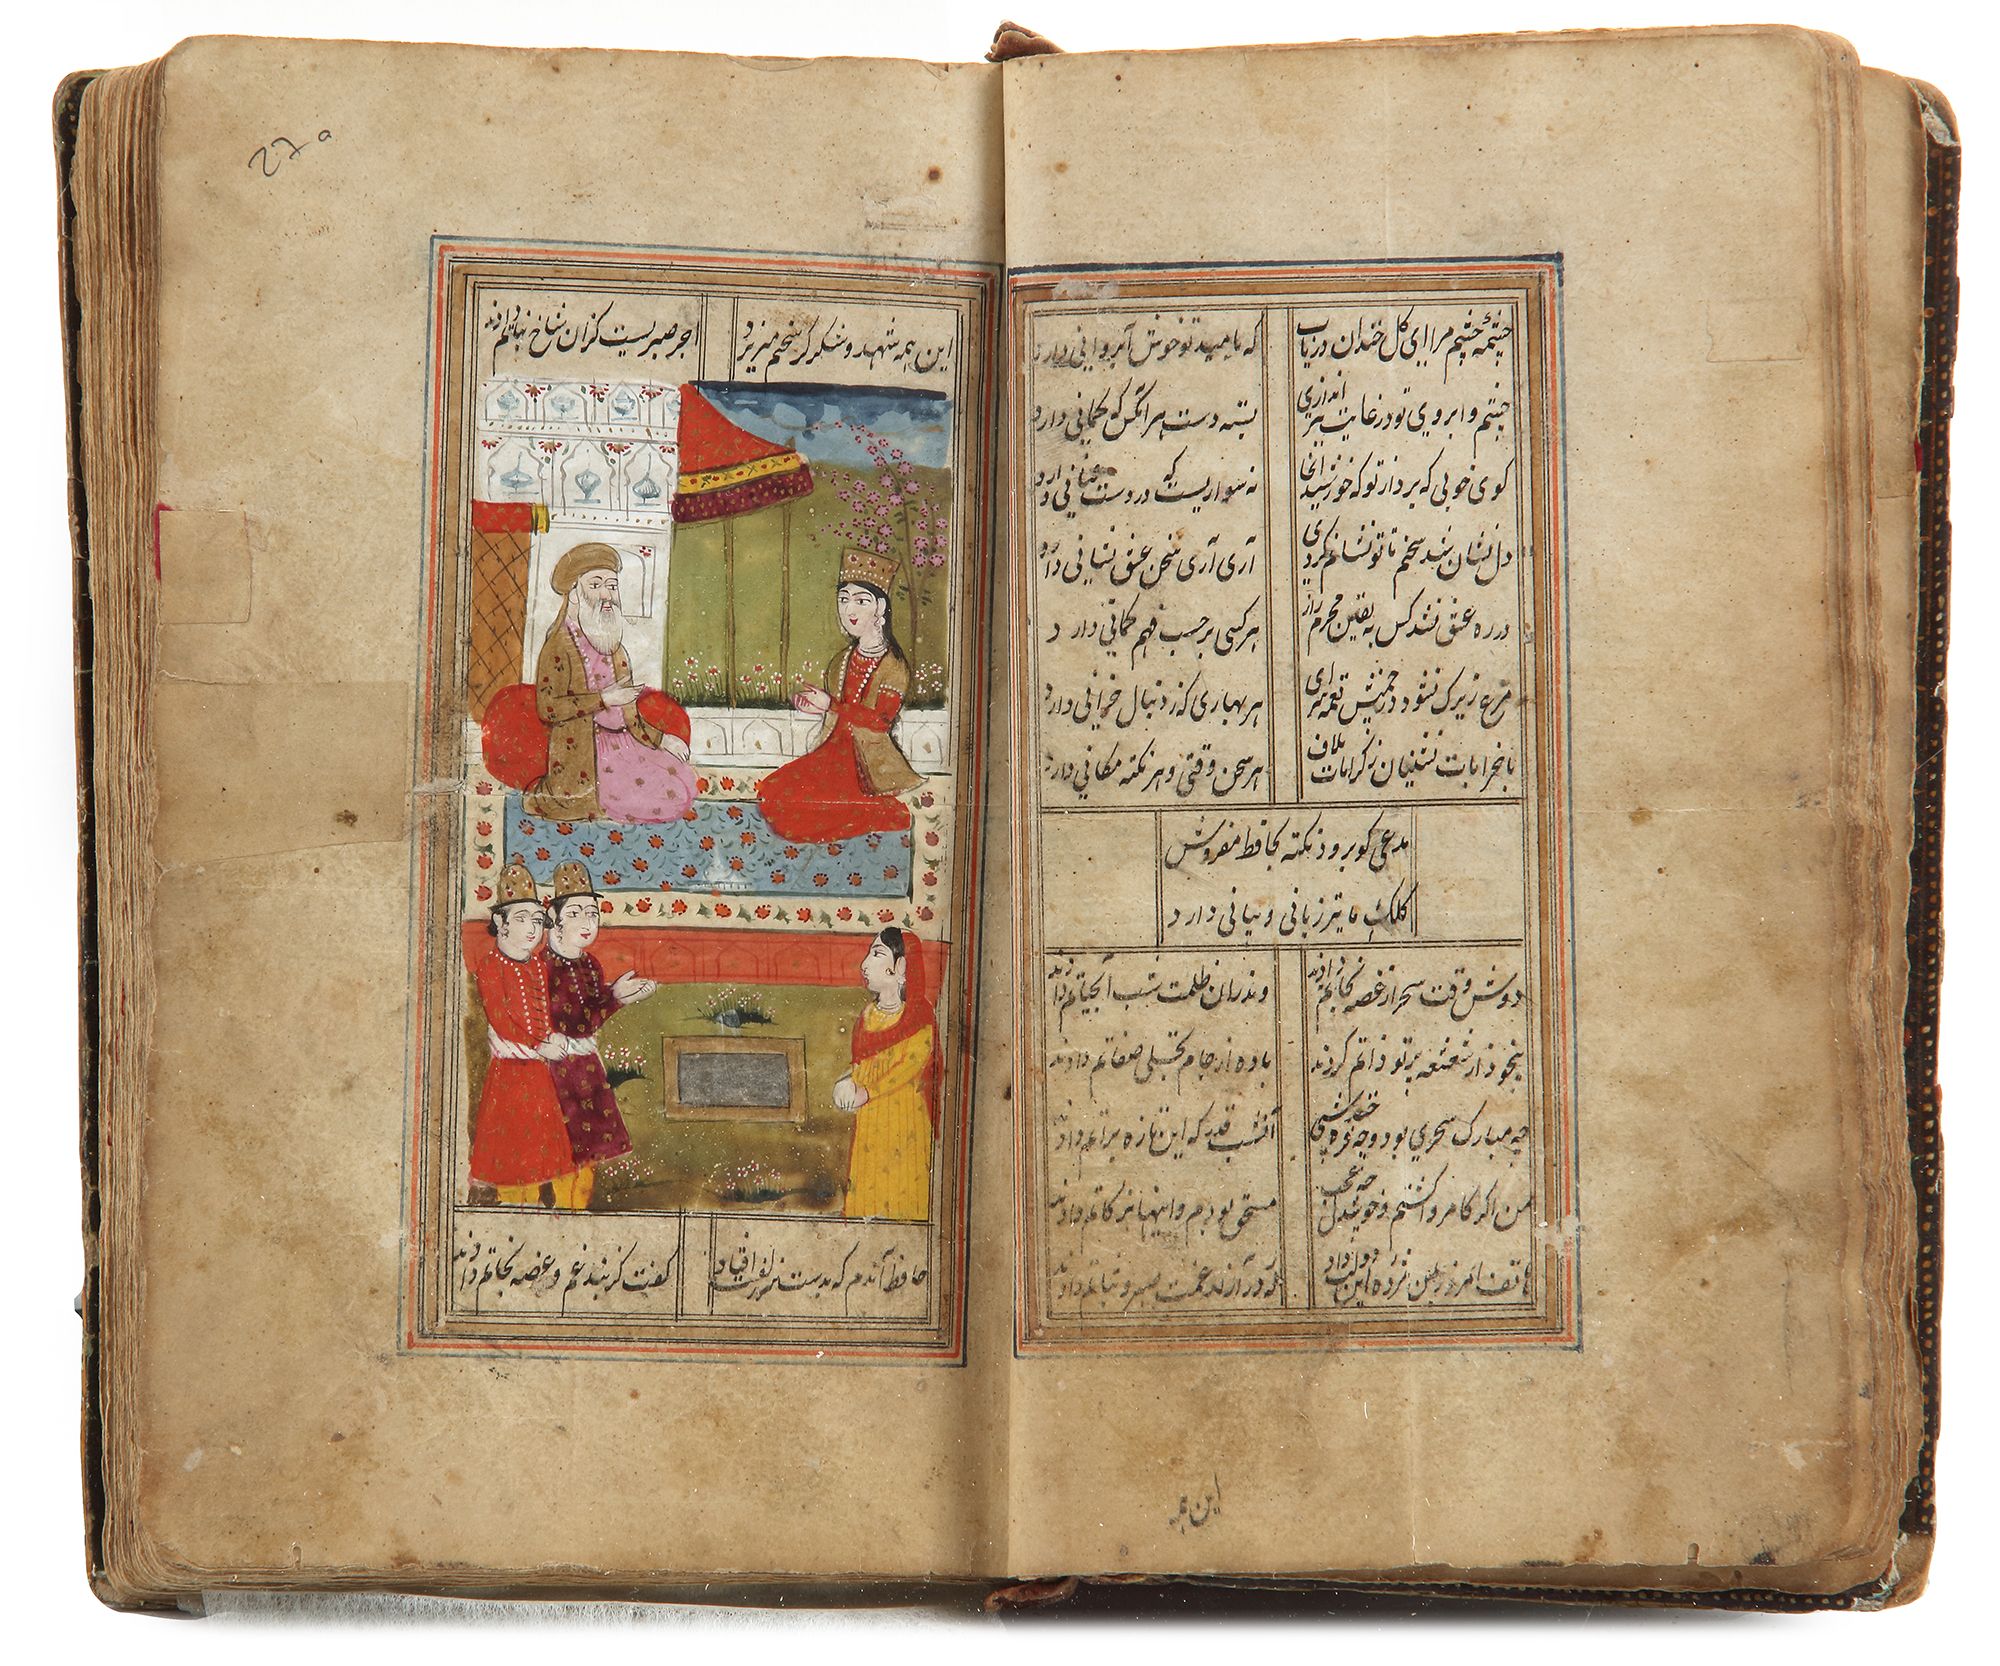 چشمهٔ چشم مرا ای کل خندان دریاب که بامید تو خوش آب روانی دارد
چشم و ابروی تو در غایت تیر اندازی بسته دست هر آنکس کو کمانی دارد
کوی خوبی که برد از تو که خورشید آنجا نه سواریست که در دست عنانی دارد
دل نشان شد سخنم تا تو نشانم کردی آری آری سخن عشق نشانی دارد
در ره عشق نشد کس به یقین محرم راز هر کسی بر حسب فهم کمانی دارد
مرغ زیرک نشود در چمنش نغمه سرای هر بهاری که ز دنبال خزانی دارد
با خرابات نشینان ز کرامات ملاف هر سخن وقتی و هر نکته مکانی دارد
مدعی کو برو نکته بحافظ مفروش
کلک ما نیز زبانی و بیانی دارد
دوش وقت سحر از غصه نجاتم دادند وندران ظلمت شب آبحیاتم دادند
بیخود از شعشعه پرتو ذاتم کردند باده از جام تجلی صفاتم دادند
چه مبارک سحری بود و چه فرخنده شبی آنشب قدر که این تازه براتم دادند
من اکر کامروا کشتم و خوشدل چه عجب مستحق بودم و اینها بزکاتم دادند
هاتف امروز بمن مژده این دولت داد که در آزار غمت صبر و ثباتم دادند
این همه
27a
این همه شهد و شکر کز سخنم میریزد اجر صبریست کزان شاخ نباتم دادند
حافظ آندم که بدست سر زلفت افتاد کفت کز بند غم و غصه نجاتم دادند